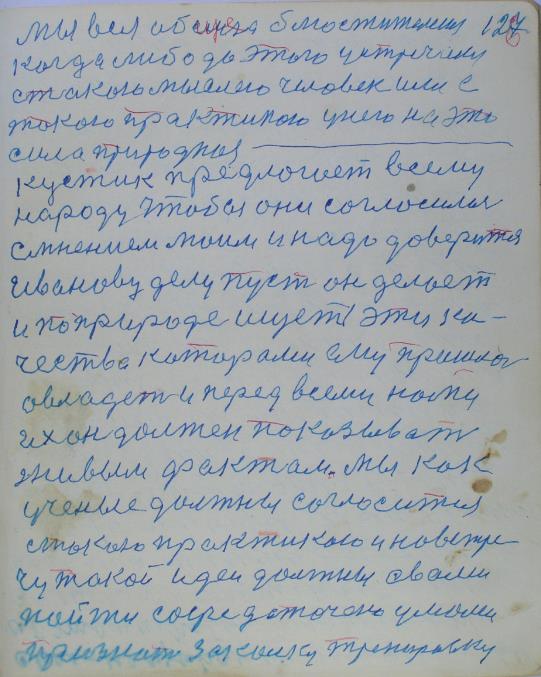 мы вся общества блюстителия 127
когда либо до этого устречали
стакою мыслею человек или с
токого практикою унего на это
сила природная
кустик предлогает всему
народу чтобы они соглосилия
смнением моим и надо доверится
Иванову делу пуст он делает
и по природе ищет эти ка-
чества каторами ему пришлос
овладет и перед всеми нами
их он должен показыват
живым фрактам. мы как
ученые должны соглосится
стокою практикою и навстре
чу такой идеи должны свами
пойти сосредоточено умами
признат закалку тренировку